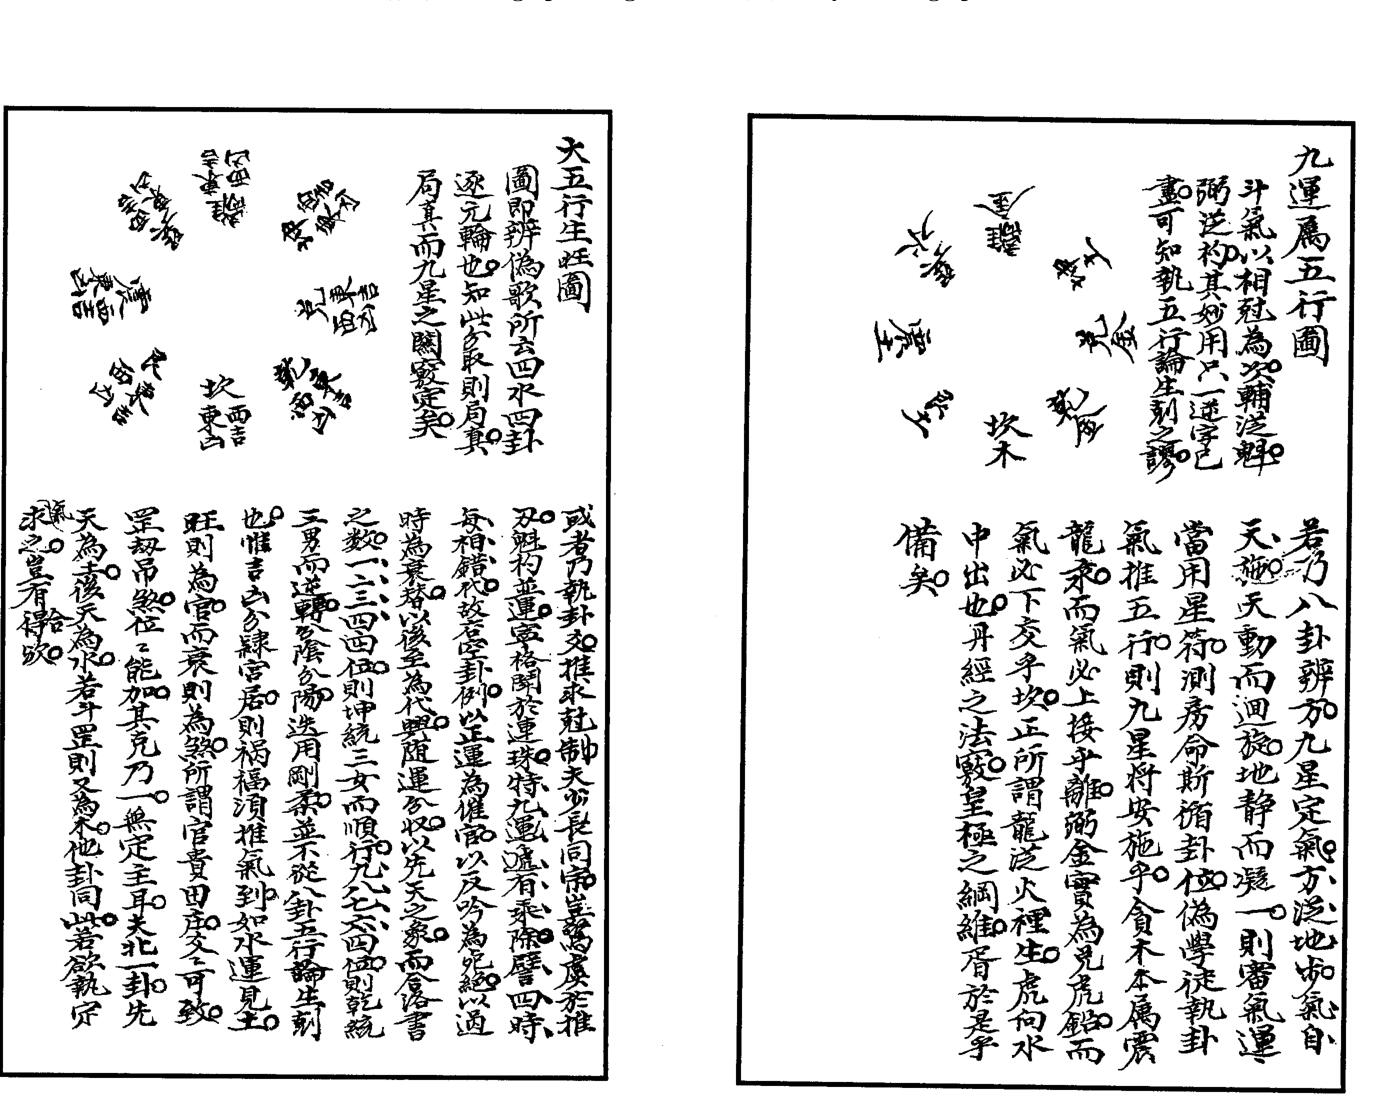 九運屬五行圖
斗氣以相尅為次輔從魁
弼從杓其妙用只一逆字已
盡可知執五行論生剋之謬
離 金
坤 土
兌 金
乾
坎 木
艮 土
震 土
巽 火
若乃八卦辨方九星定氣方從地步氣自
天施天動而迴旋地静而凝一則審氣運
當用星符測房命斯循卦位偽學徒執卦
氣推五行則九星将安施乎貪木本屬震
龍汞而氣必上接乎離弼金實為兌虎鉛而
氣必下交乎坎正所謂龍從火裡生虎向水
中出也丹經之法竅皇極之綱維胥於是乎
備矣
大五行生旺圖
圖即辨偽歌所云四水四卦
逐元輪也知此分取則局真
局真而九星之關竅定矣
離 東吉 西凶
坤
兌 東吉 西凶
乾 東吉 西凶
坎 東凶 西吉
艮
震 東凶 西吉
巽
或者乃執卦爻推求尅制夫少長同宗豈為虞於推
刃魁杓並運寧格鬪於連珠特九運遞有乘除譬四時
每相錯代故右空卦例以正運為催官以反吟為死絕以過
時為衰替以後至為代興随運分収以先天之象而合洛書
之数一二三四四伍則坤統三女而順行九八七六四伍則乾統
三男而逆轉分陰分陽迭用剛柔並不從八卦五行論生剋
也惟吉凶分隸宮居則禍福須推氣到如水運見土
旺則為官而衰則為煞所謂官貴田庄文々可致
罡刼吊煞位々能加其克乃一無定主耳夫北一卦先
天為土後天為水若斗罡則又為木他卦同此若欲執定
氣求之豈有得哈欤